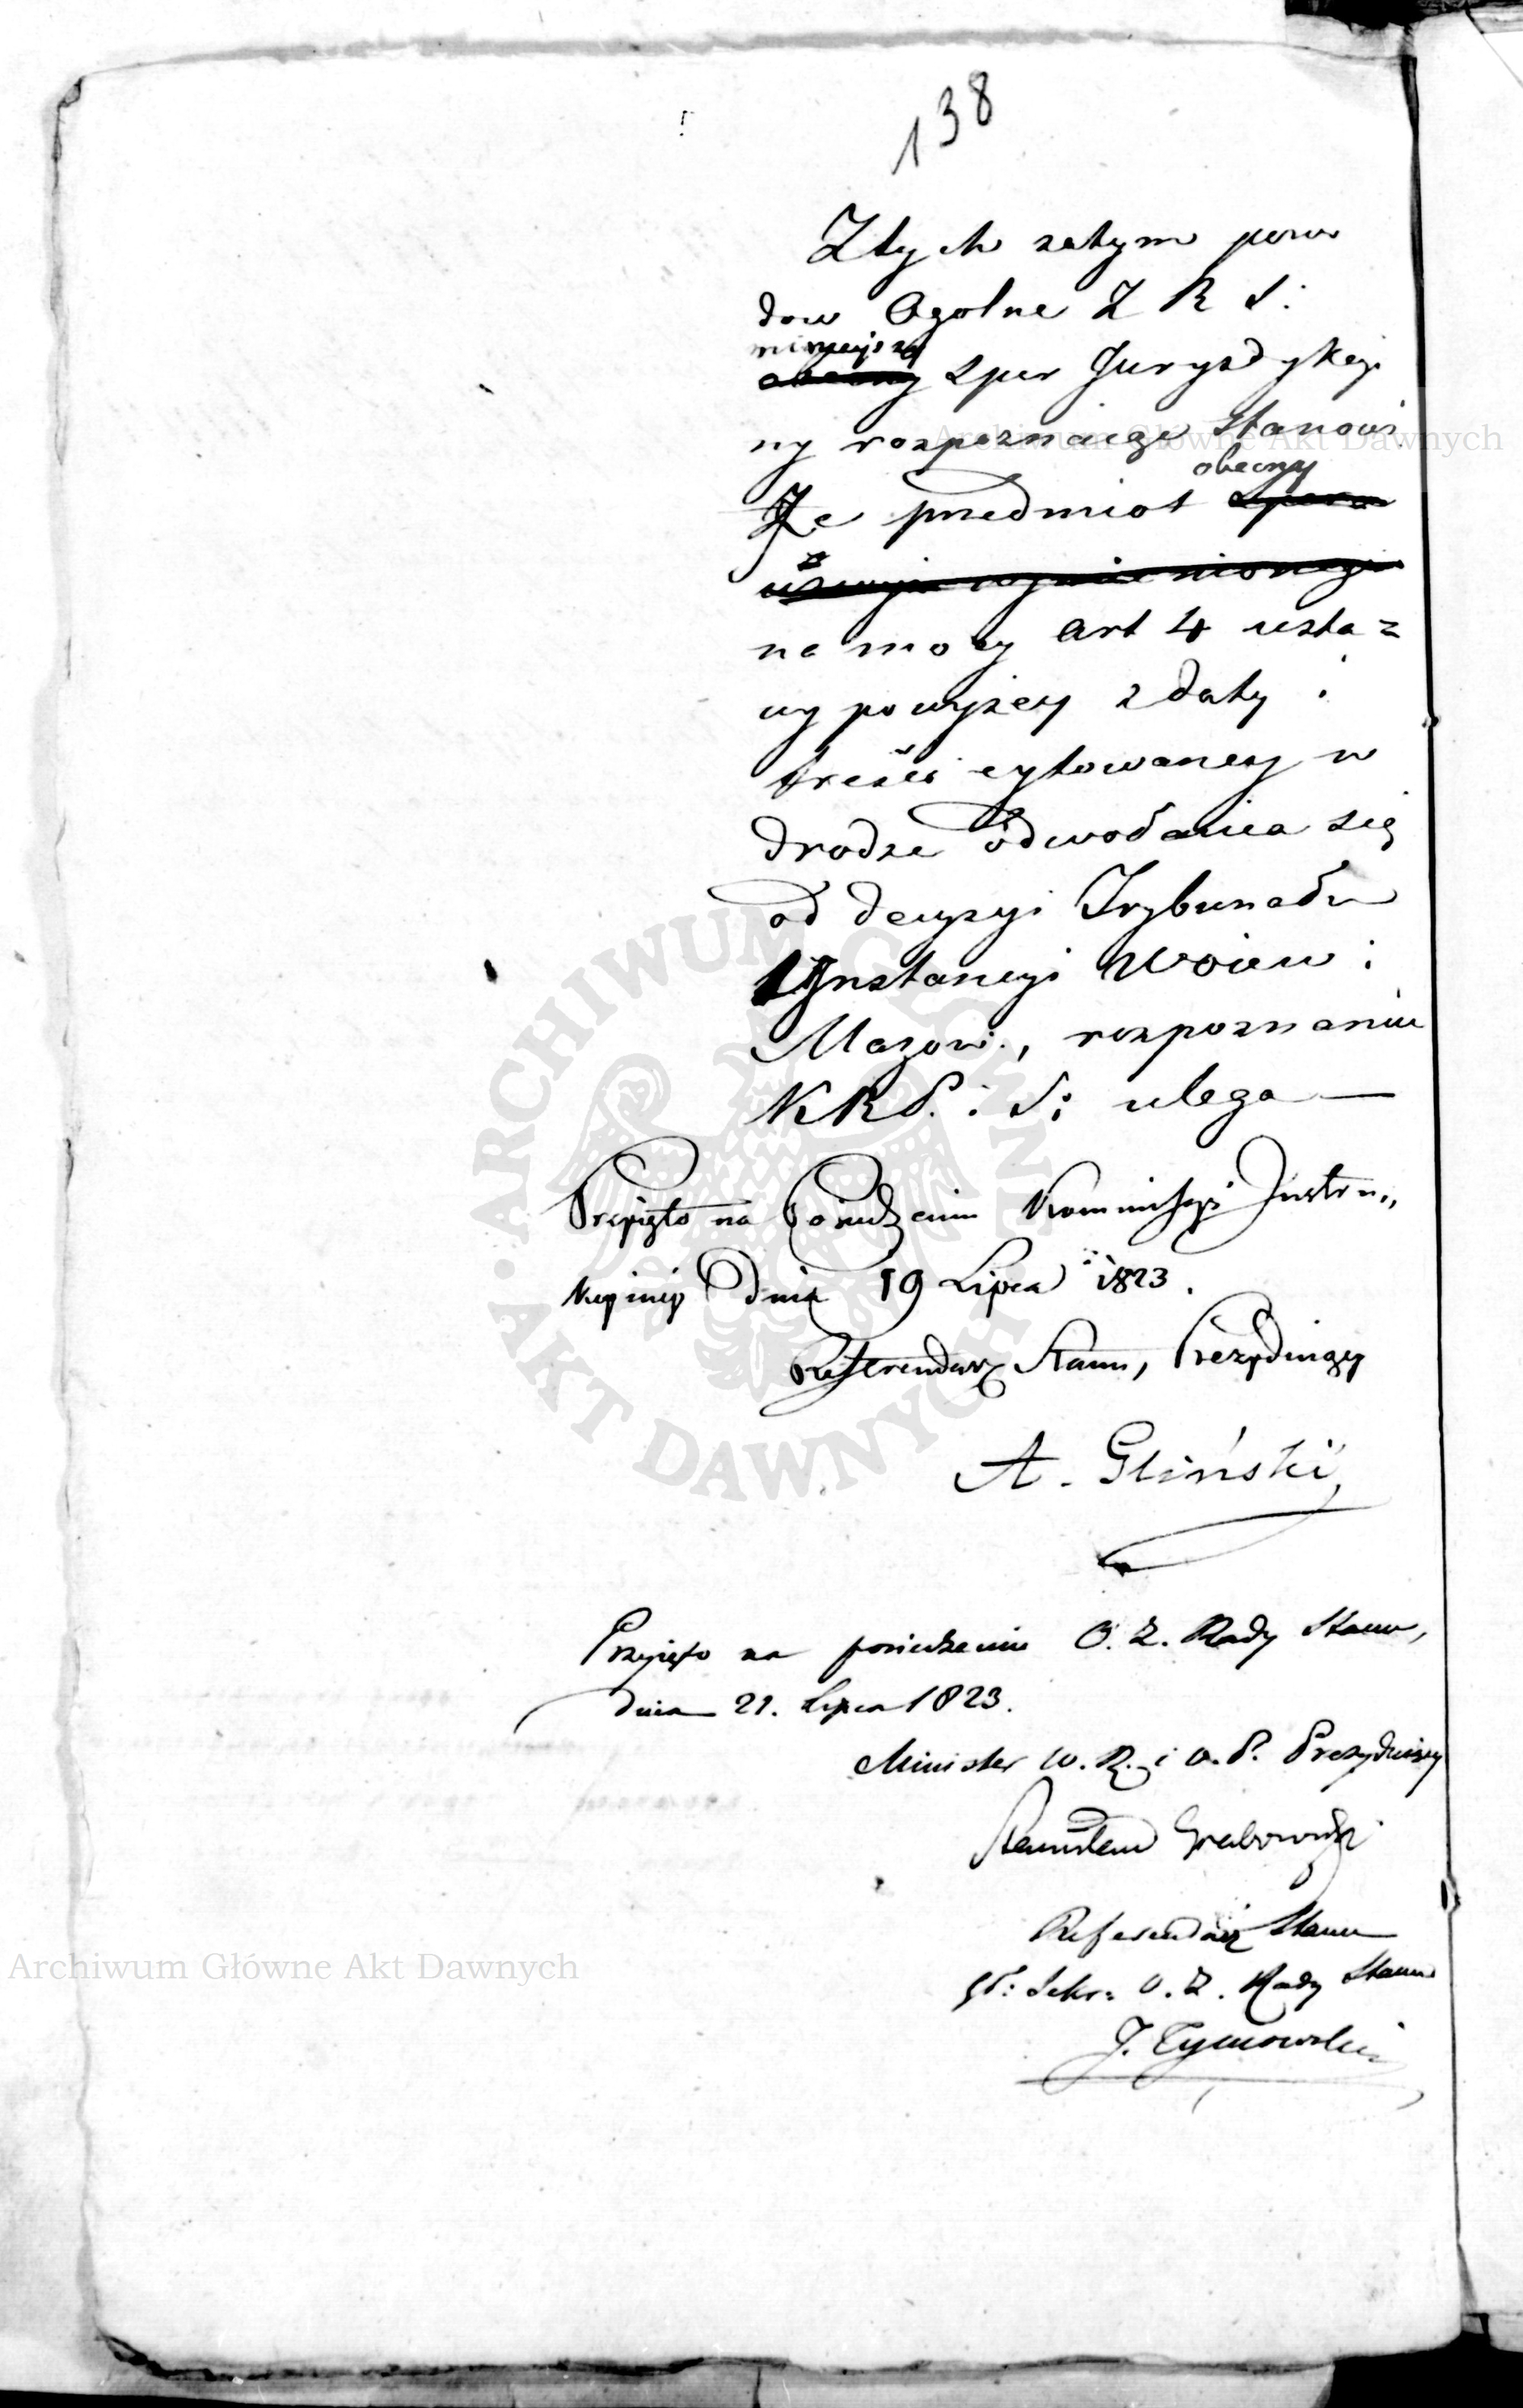 138
Z tych zatym powo
dow Ogolne Z R S:
ninieyszy
obecny spor Jurysdykcyi
ny rozpoznaiąc stanowi
Że przedmiot obecny
na mocy art 4 usta=
wy powyżey z daty i
treści cytowaney w
drodze odwołania się
od decyzyi Trybunału
1 Instancyi Woiew:
Mazow:, rozpoznaniu
KRP. i S: ulega —
Przyięto na Posiedzeniu Kommissyi Instru„
kcyiney dnia 19 Lipca 1823.
Referendarz Stanu, Prezyduiący
A. Gliński
Przyięto na posiedzeniu O. Z. Rady Stanu,
dnia 21. Lipca 1823.
Minister W. R. i O. P. Prezyduiący
Stanisław Grabowski
Referendarz Stanu
Sekr: O. Z. Rady Stanu
J. Tymowski
Archiwum Główne Akt Dawnych
ARCHIWUM GŁÓWNE AKT DAWNYCH
Archiwum Główne Akt Dawnych